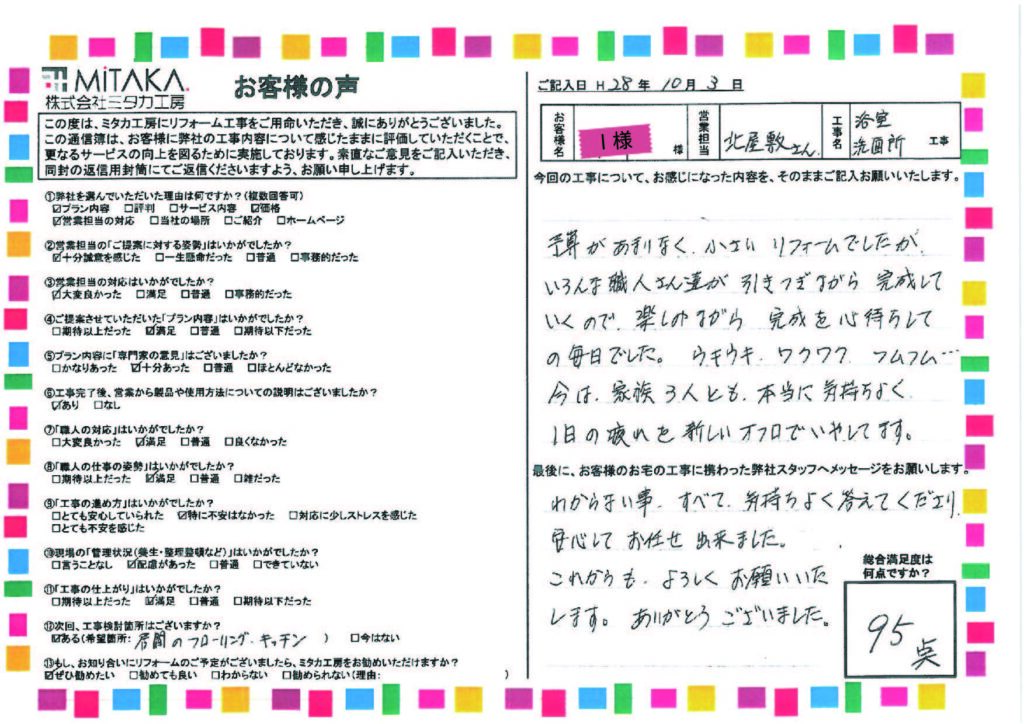 MiTAKA.
株式会社ミタカ工房
お客様の声
この度は、ミタカ工房にリフォーム工事をご用命いただき、誠にありがとうございました。
この通信簿は、お客様に弊社の工事内容について感じたままに評価していただくことで、
更なるサービスの向上を図るために実施しております。素直なご意見をご記入いただき、
同封の返信用封筒にてご返信くださいますよう、お願い申し上げます。
①弊社を選んでいただいた理由は何ですか?(複数回答可)
☑プラン内容 □評判 □サービス内容 ☑価格
☑営業担当の対応 □当社の場所 □ご紹介 □ホームページ
②営業担当の「ご提案に対する姿勢」はいかがでしたか?
☑十分誠意を感じた □一生懸命だった □普通 □事務的だった
③営業担当の対応はいかがでしたか?
☑大変良かった □満足 □普通 □事務的だった
④ご提案させていただいた「プラン内容」はいかがでしたか?
□期待以上だった ☑満足 □普通 □期待以下だった
⑤プラン内容に「専門家の意見」はございましたか?
□かなりあった ☑十分あった □普通 □ほとんどなかった
⑥工事完了後、営業から製品や使用方法についての説明はございましたか?
☑あり □なし
⑦「職人の対応」はいかがでしたか?
□大変良かった ☑満足 □普通 □良くなかった
⑧「職人の仕事の姿勢」はいかがでしたか?
□期待以上だった ☑満足 □普通 □雑だった
⑨「工事の進め方」はいかがでしたか?
□とても安心していられた ☑特に不安はなかった □対応に少しストレスを感じた
□とても不安を感じた
⑩現場の「管理状況(養生・整理整頓など)」はいかがでしたか?
□言うことなし ☑配慮があった □普通 □できていない
⑪「工事の仕上がり」はいかがでしたか?
□期待以上だった ☑満足 □普通 □期待以下だった
⑫次回、工事検討箇所はございますか?
☑ある(希望箇所: 居間のフローリング、キッチン ) □今はない
⑬もし、お知り合いにリフォームのご予定がございましたら、ミタカ工房をお勧めいただけますか?
☑ぜひ勧めたい □勧めても良い □わからない □勧められない(理由: )
ご記入日 H 28 年 10 月 3 日
お客様名 I様 様 営業担当 北屋敷さん 工事名 浴室 洗面所 工事
今回の工事について、お感じになった内容を、そのままご記入お願いいたします。
予算があまりなく、小さい リフォームでしたが、
いろんな職人さん達が 引きつぎながら 完成して
いくので、楽しみながら 完成を心待ちして
の毎日でした。 ウキウキ、ワクワク、フムフム…
今は、家族3人とも、本当に気持ちよく
1日の疲れを新しいオフロでいやしてます。
最後に、お客様のお宅の工事に携わった弊社スタッフへメッセージをお願いします。
わからない事、すべて、気持ちよく答えてくださり、
安心して お任せ 出来ました。
これからも、よろしく お願いいた
します。ありがとう ございました。
総合満足度は
何点ですか?
95点